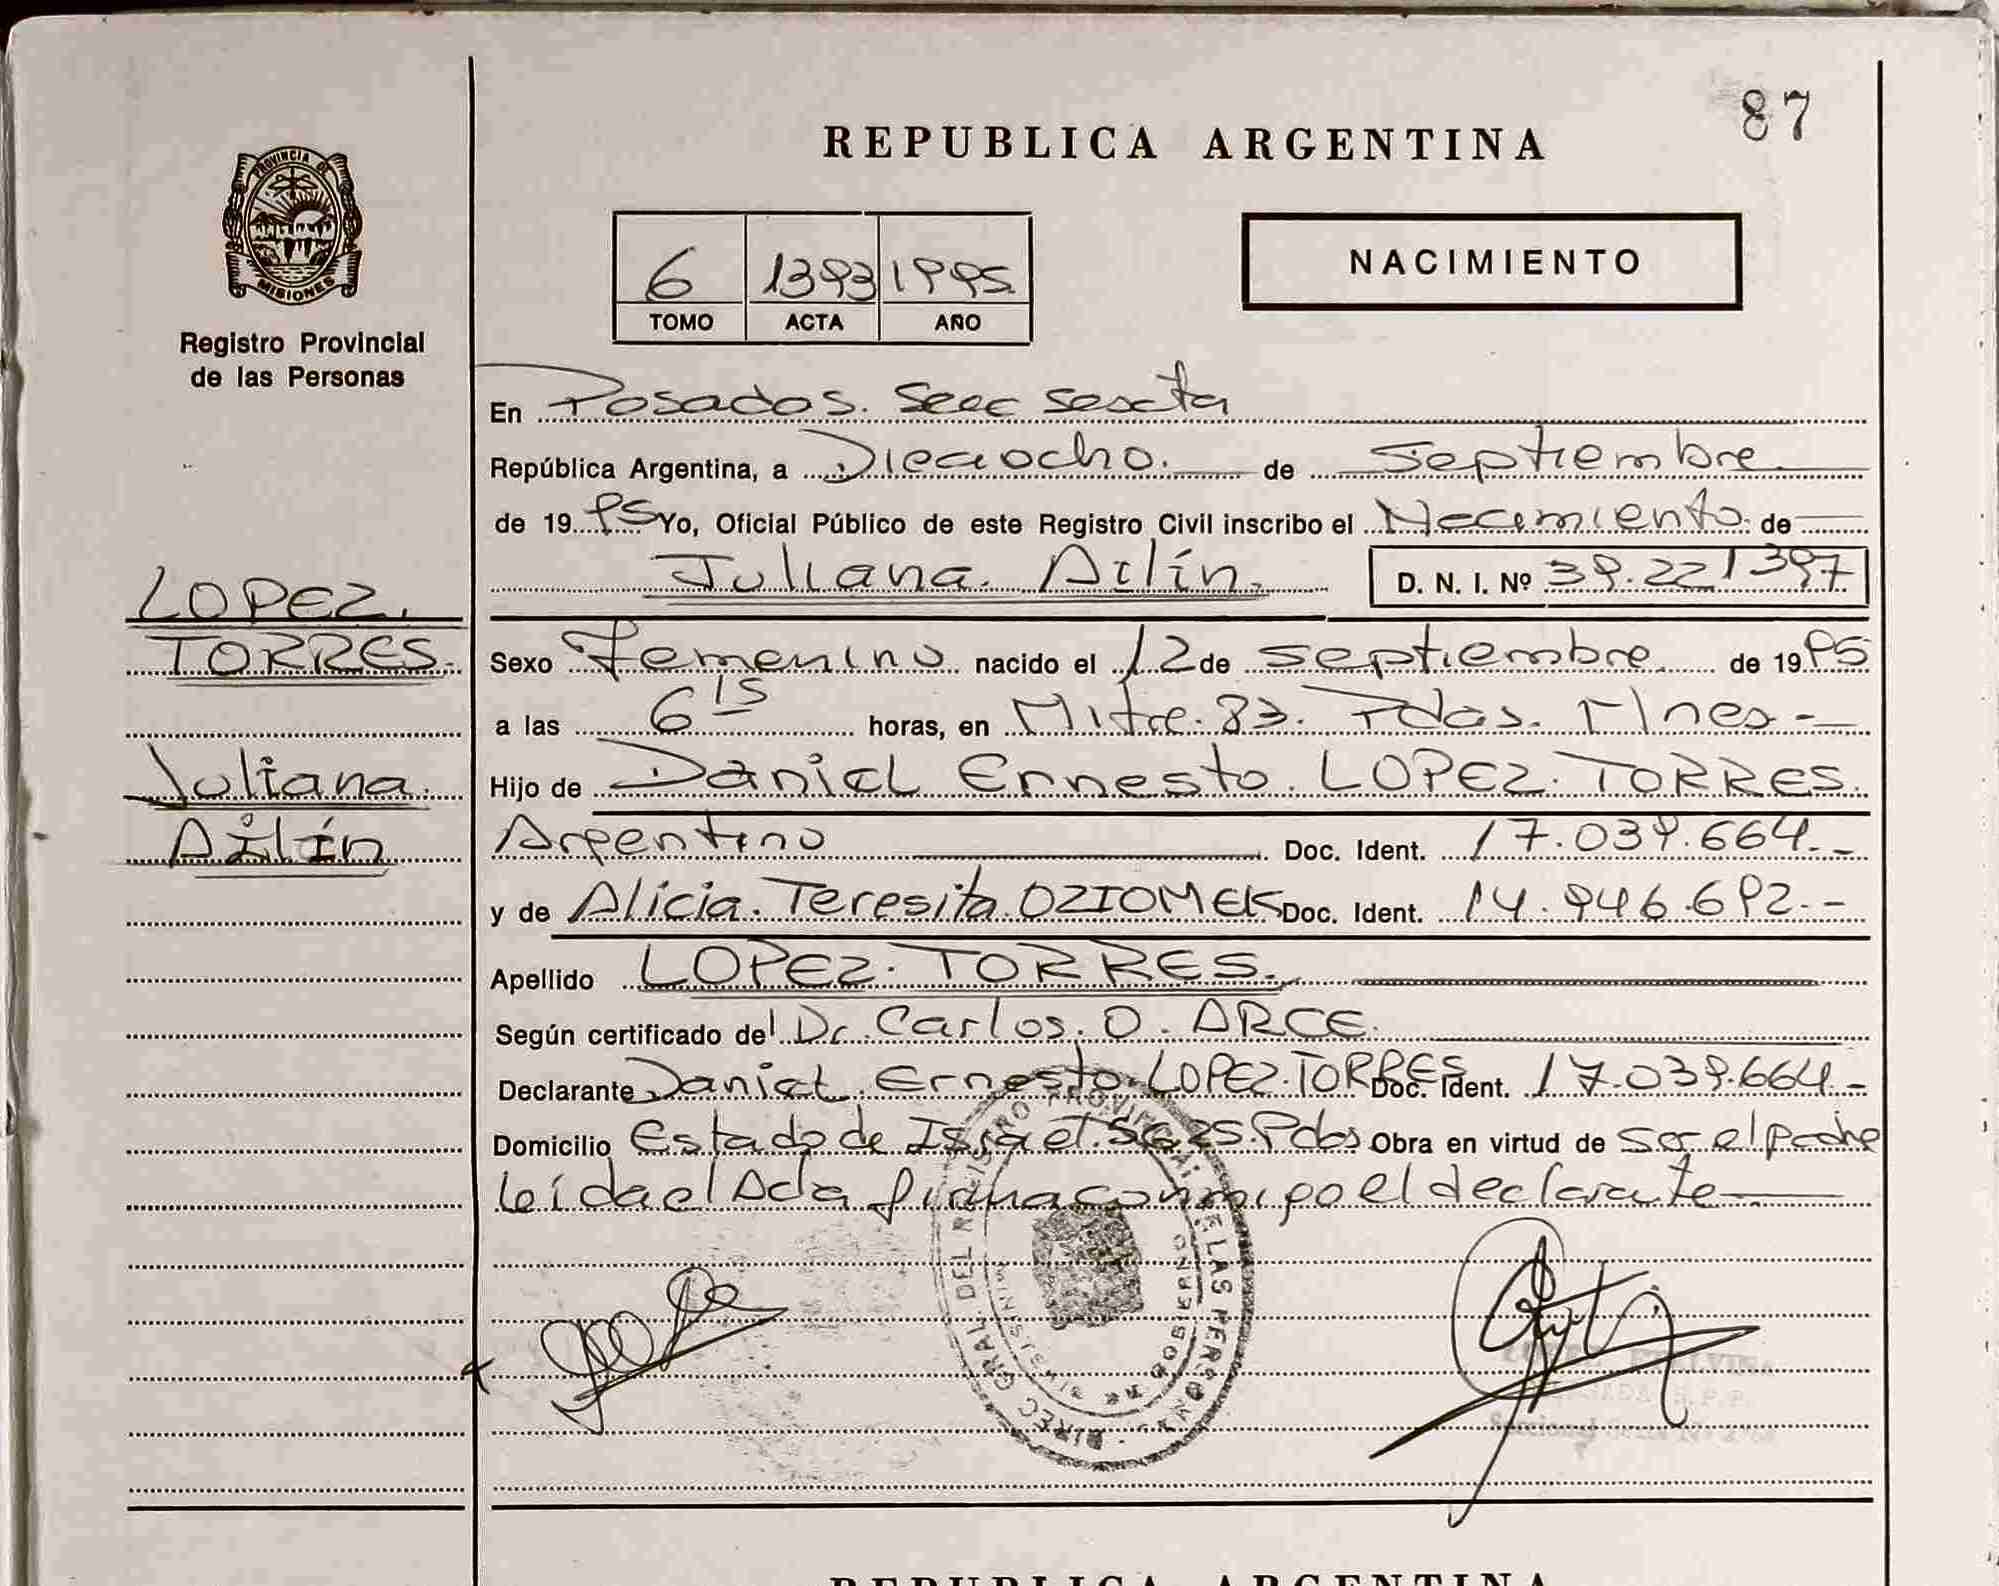 87
REPUBLICA ARGENTINA
PROVINCIA DE
MISIONES
Registro Provincial
de las Personas
6 1393 1995
TOMO ACTA AÑO
NACIMIENTO
LOPEZ.
TORRES.
Juliana.
Ailín
En Posadas. Secc Sexta
República Argentina, a Dieciocho. de Septiembre
de 1995 Yo, Oficial Público de este Registro Civil inscribo el Nacimiento de
Juliana. Ailín. D. N. I. Nº 39.221397
Sexo Femenino nacido el 12 de septiembre de 1995
a las 6 15 horas, en Mitre. 83. Pdas. Mnes -
Hijo de Daniel Ernesto. LOPEZ. TORRES.
Argentino Doc. Ident. 17.039.664.-
y de Alicia. Teresita. OZIOMEK Doc. Ident. 14.946.692.-
Apellido LOPEZ. TORRES.
Según certificado del Dr. Carlos. O. ARCE.
Declarante Daniel. Ernesto. LOPEZ. TORRES Doc. Ident. 17.039.664.-
Domicilio Estado de Israel. 5625. Pdas Obra en virtud de ser el padre
leída el Acta firma conmigo el declarante
DIREC GRAL. DEL REGISTRO PROVINCIAL DE LAS PERSONAS
GOBIERNO
REPUBLICA ARGENTINA